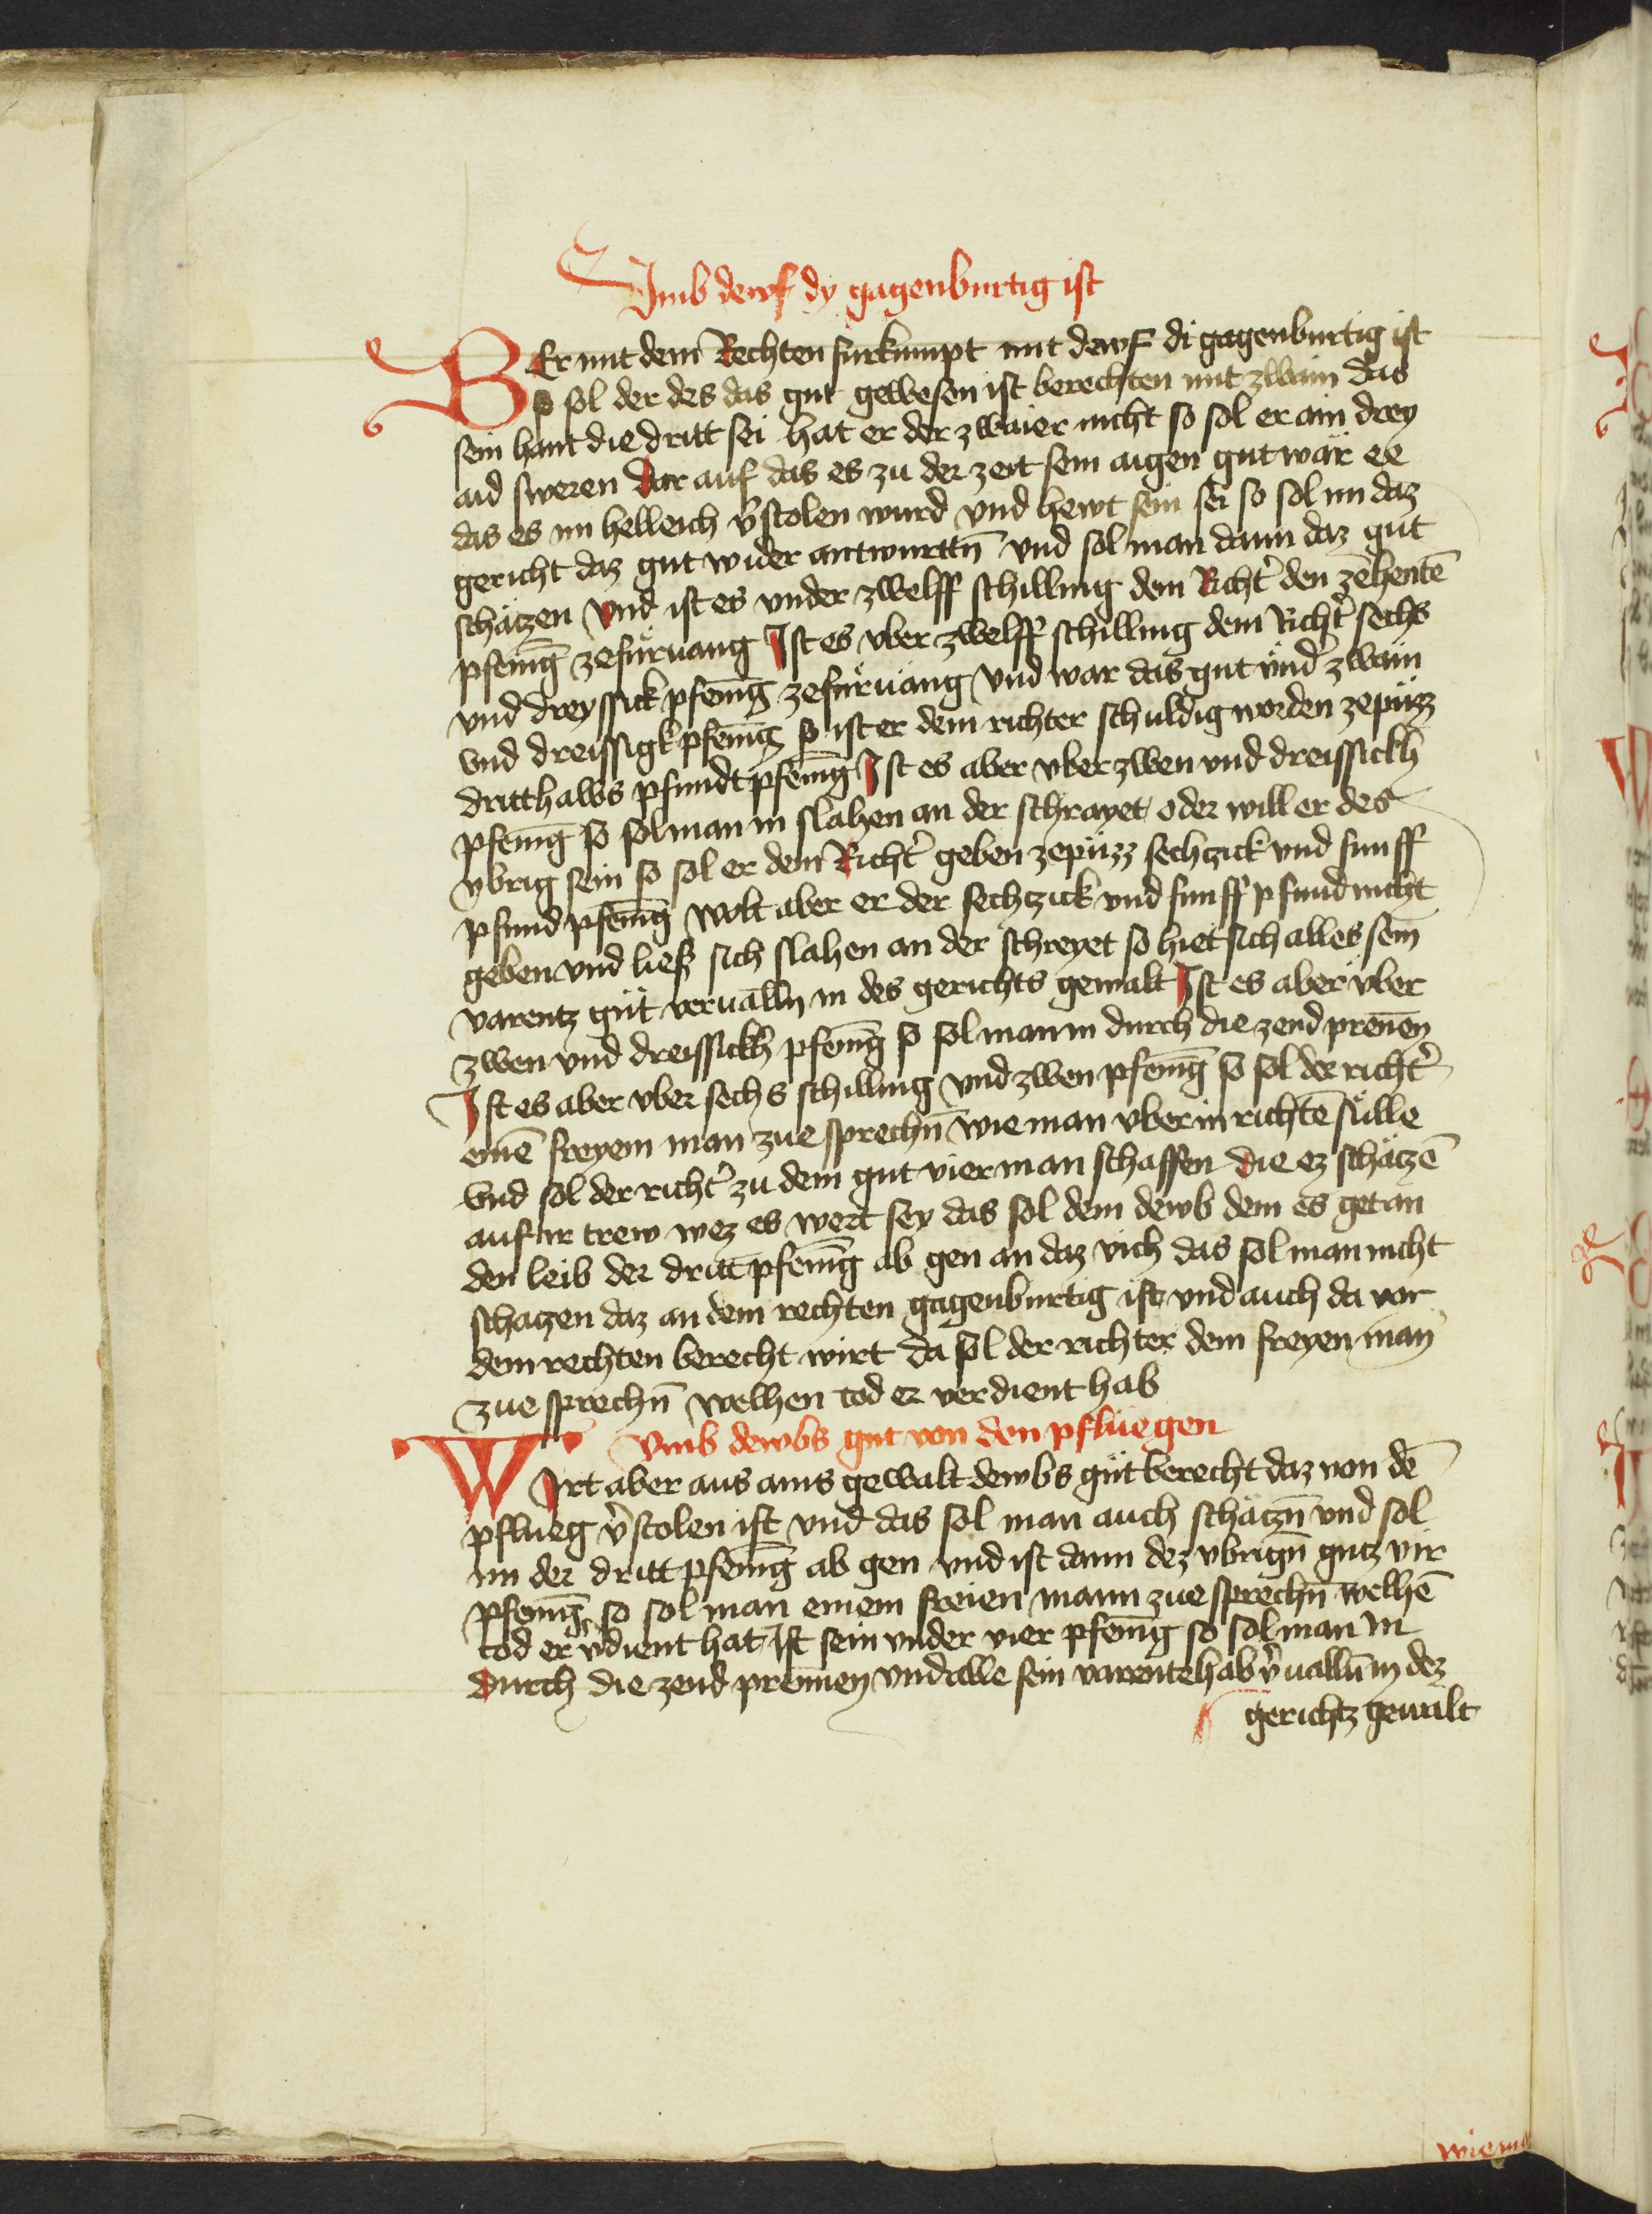 Vmb dewf dy gagenburtig ist
BEr mit dem Rechten furkumpt mit dewf di gagenburtig ist
so sol der des das gut gewesen ist berechten mit zwain das
sein hant die dritt sei hat er der zwaier nicht so sol er ain drey
aid sweren dar auf das es zu der zeit sein aigen gut wär ee
das es im helleich v̉stolen wurd vnd hewt sein sei so sol im daz
gericht daz gut wider antwurttn̄ vnd sol man dann daz gut
schätzen vnd ist es vnder zwelff schilling dem Richt̉ den zehentē
pfenīg zefüruang Ist es vber zwelff schilling dem Richt̉ sechs
vnd dreyssick pfenīg zefüruang vnd wär das gut vnd̉ zwain
vnd dreissigk pfenīg so ist er dem richter schuldig worden zepüzz
dritthalbs pfundt pfenīg Ist es aber vber zwen vnd dreissickh
pfenīg so sol man in slahen an der schrayet oder will er des
vbrig sein so sol er dem Richt̉ geben zepüzz sechzick vnd funff
pfund pfenīg wolt aber er der sechzick vnd funff pfund nicht
geben vnd liess sich slahen an der schreyet so hiet sich alles sein
varentz güt veruallñ in des gerichts gewalt Ist es aber vber
zwen vnd dreissickh pfenīg so sol man in durch die zend prenen
Ist es aber vber sechs schilling vnd zwen pfenīg so sol der richt̉
einē freyem man zue sprechn̄ wie man vber in richtē sülle
vnd sol der richt̉ zu dem gut vier man schaffen die ez schätzē
auf ir trew wez es wert sey das sol dem dewb dem es get an
den leib der dritt pfenīg ab gen an daz vich das sol man nicht
schatzen daz an dem rechten gagenburtig ist vnd auch da vor
dem rechten berecht wirt da sol der richter dem freyen man
zue sprechn̄ welhen tod er verdient hab
Vmb dewbs gut von den pfluegen
WIrt aber aus ains gewalt dewbs güt berecht daz von dē
pflueg v̉stolen ist vnd das sol man auch schätzn̄ vnd sol
im der dritt pfenīg ab gen vnd ist dann dez vbrign̄ gutz vir
pfenīg so sol man einem freien mann zue sprechn̄ welhē
tod er v̉dient hat Ist sein vnder vier pfenīg so sol man in
durch die zend prennen vnd alle sein varentehab v̉ualln̄ in dez
gerichtz gewalt